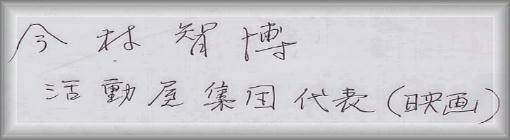 今村智博
活動屋集団代表(映画)